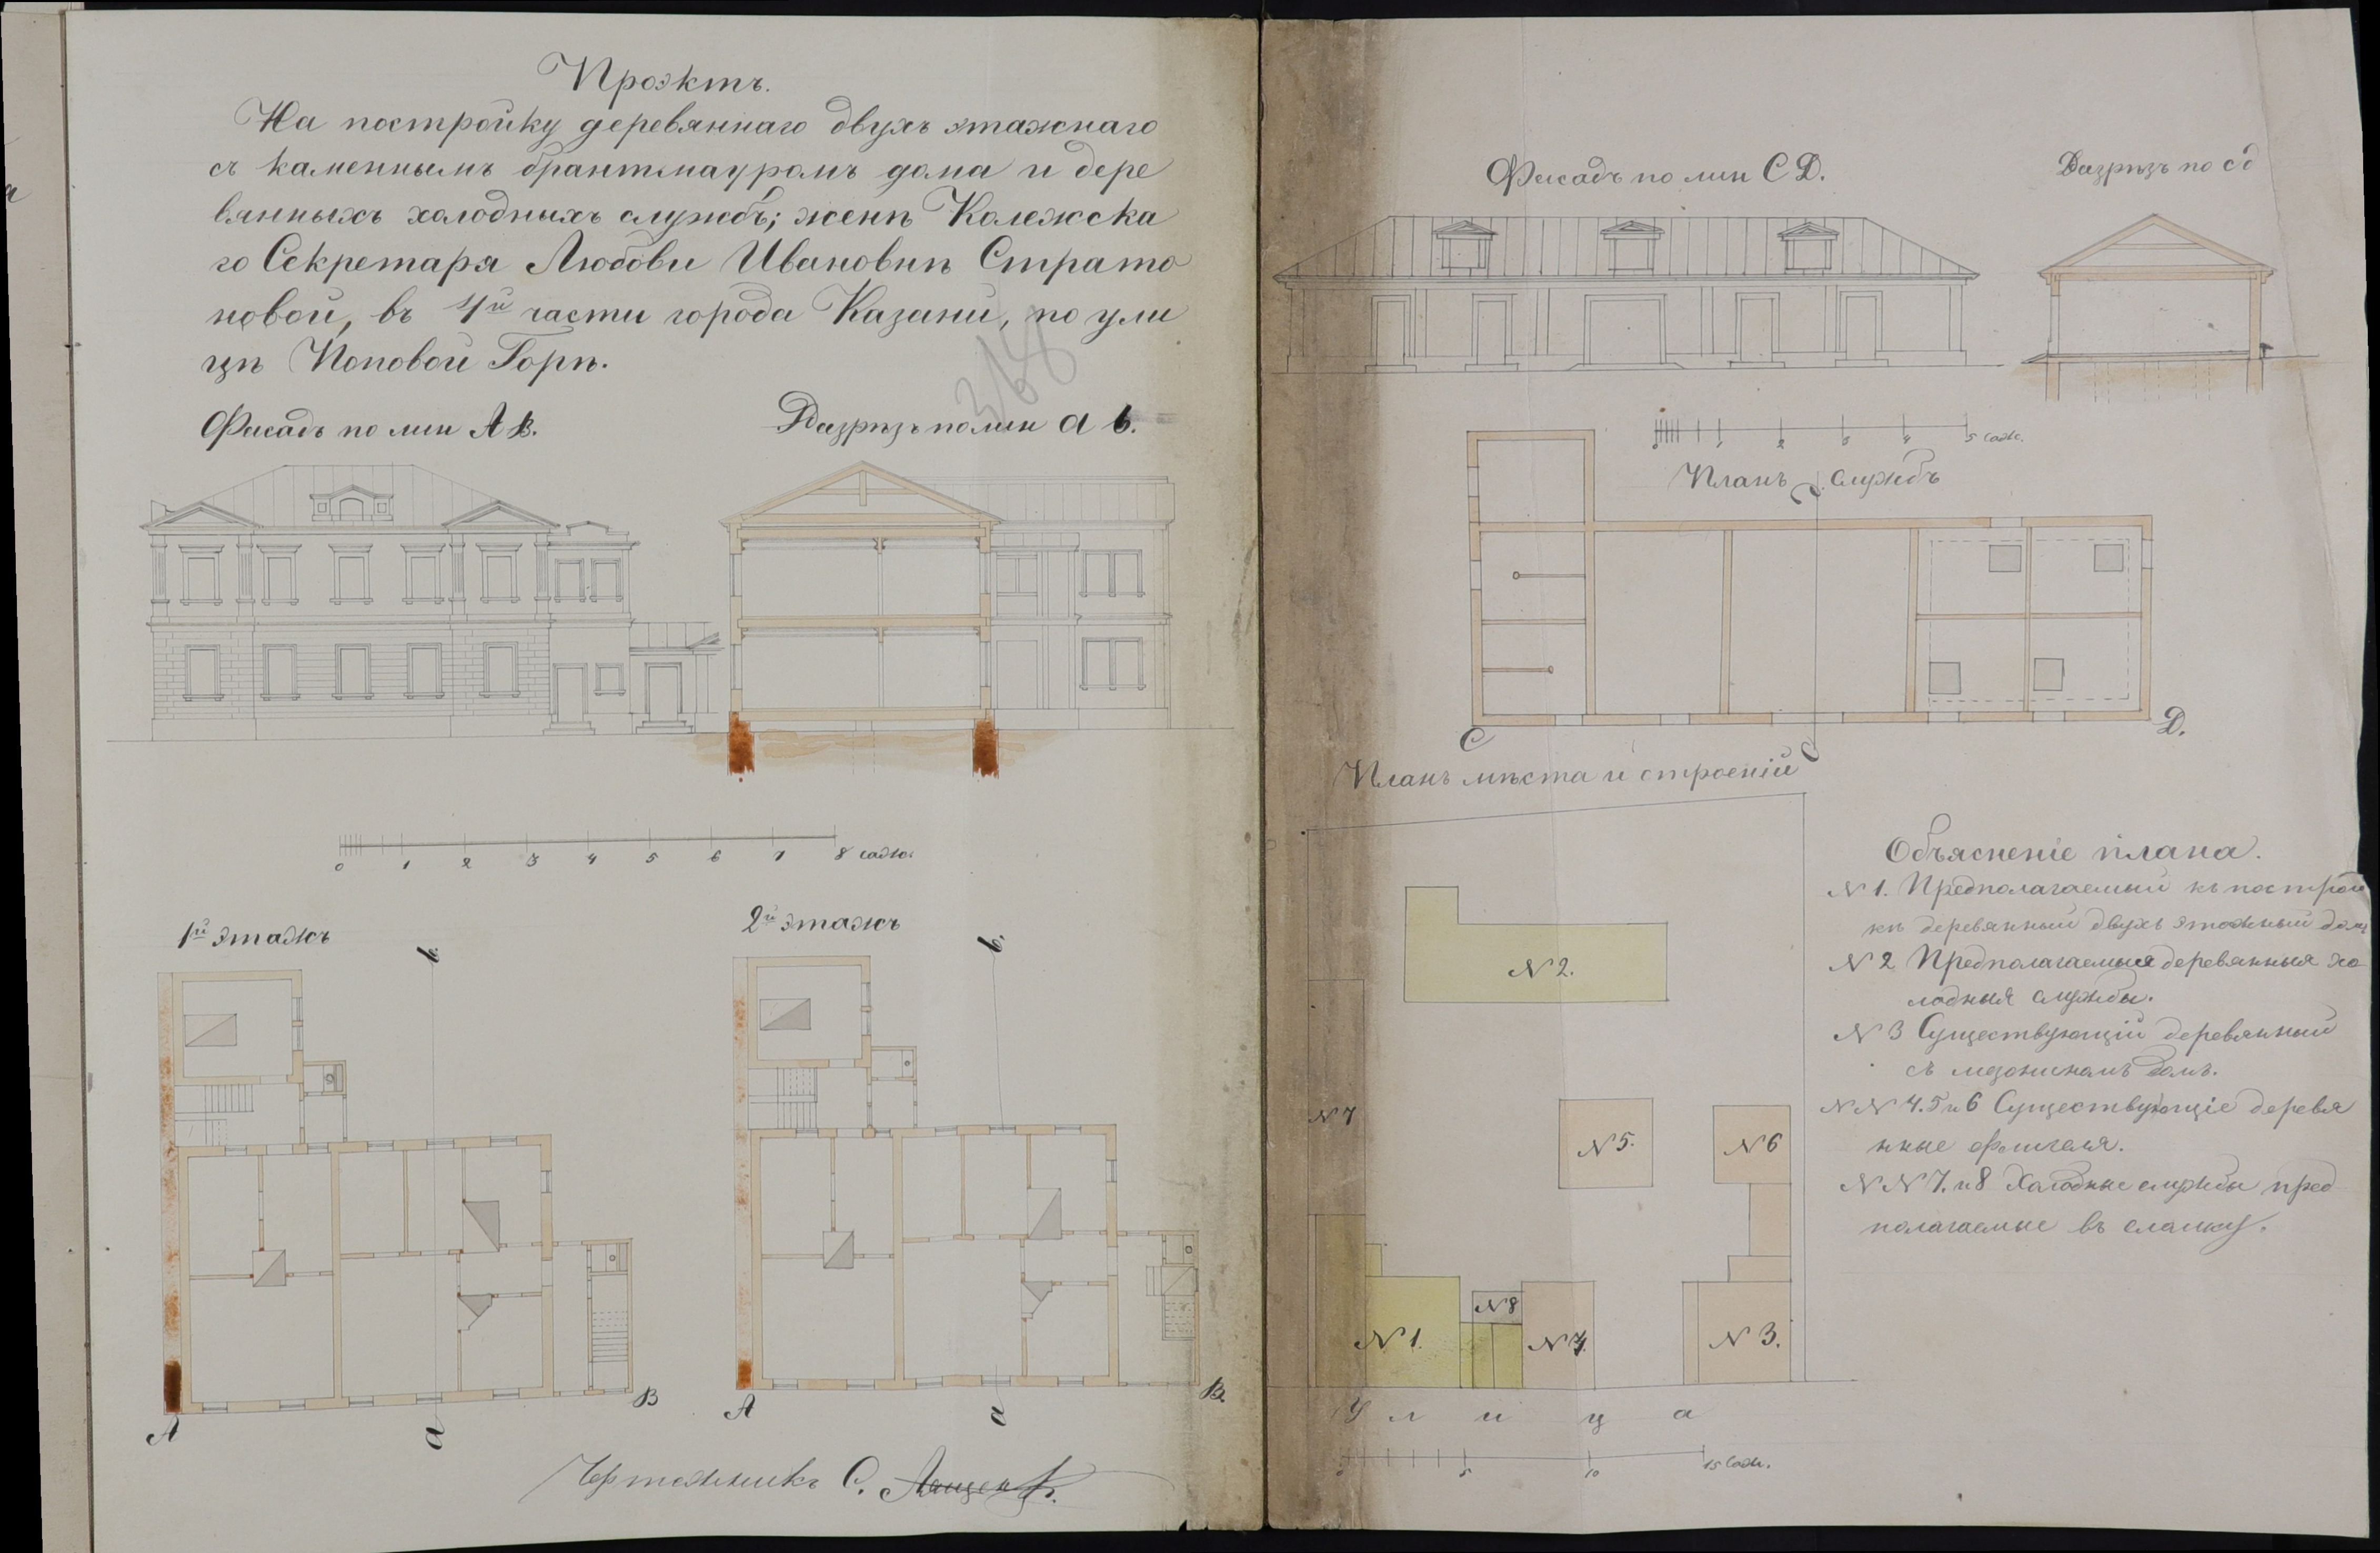 Проэктъ.
На постройку деревяннаго двухъ этажнаго
съ каменнымъ брантмауромъ дома и дере
вянныхъ холодныхъ службъ; женѣ Колежска
го Секретаря Любови Ивановнѣ Страто
новой, въ 4й части города Казани, по ули
цѣ Поповой Горѣ.
368
Фасадъ по лин А В.
Разрѣзъ по лин a b.
0 1 2 3 4 5 6 7 8 саж.
1й этажъ
2й этажъ
b.
b.
А
a
В
А
a
В.
Чертежникъ С.
Фасадъ по лин С Д.
Разрѣзъ по c d
0 1 2 3 4 5 саж.
Планъ службъ
С
Д.
Планъ мѣста и строеній
N 2.
N 7
N 5.
N 6
N 8
N 1.
N 4.
N 3.
Улица
0 5 10 15 саж.
Объясненіе плана.
N 1. Предполагаемый къ построй
кѣ деревянный двухъ этажный домъ
N 2 Предполагаемыя деревянныя хо
лодныя службы.
N 3 Существующій деревянный
съ мезониномъ домъ.
N N 4. 5 и 6 Существующіе деревя
нные флигеля.
N N 7. и 8 Холодные службы пред
полагаемые въ сломку.